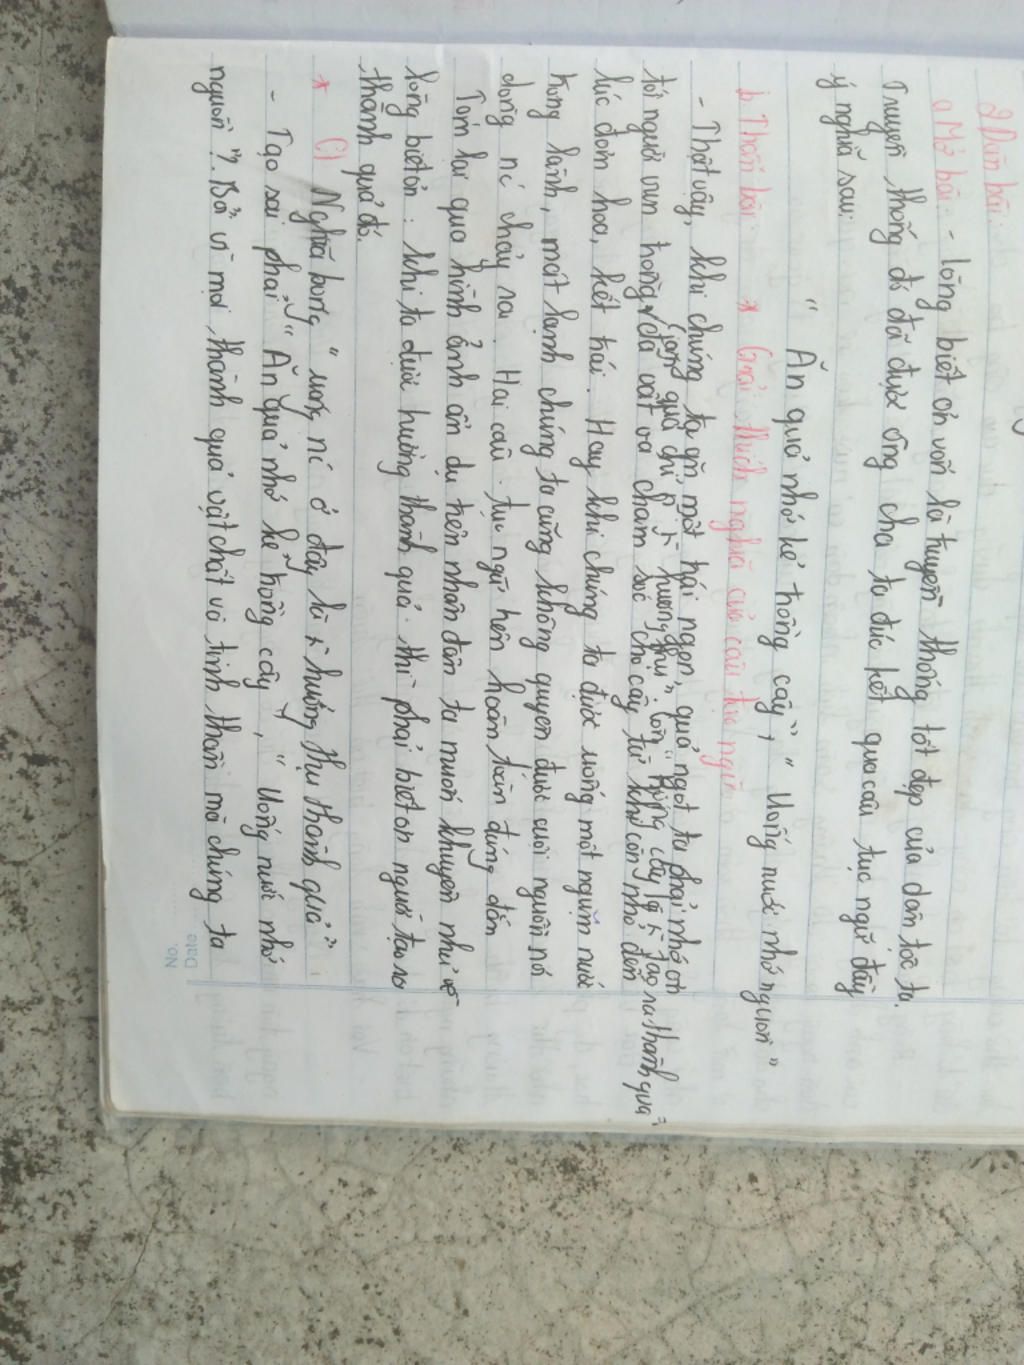 2) Dàn bài:
a, Mở bài: - lòng biết ơn vốn là truyền thống tốt đẹp của dân tộc ta.
Truyền thống đó đã được ông cha ta đúc kết qua câu tục ngữ đầy
ý nghĩa sau:
" Ăn quả nhớ kẻ trồng cây", " Uống nước nhớ nguồn "
b, Thân bài: * Giải thích nghĩa của câu tục ngữ
- Thật vậy, khi chúng ta ăn một trái ngon, quả ngọt ta phải nhớ ơn
(ăn quả chỉ hưởng thụ, còn " trồng cây là tạo ra thành quả";
tới người vun trồng, đã vất vả chăm sóc cho cây từ khi còn nhỏ đến
lúc đơm hoa, kết trái. Hay khi chúng ta được uống một ngụm nước
trong lành, mát lạnh chúng ta cũng không quyên được cuội nguồn nó
dòng nc chảy ra. Hai câu tục ngữ trên hoàn toàn đúng đắn
Tóm lại qua hình ảnh ẩn dụ trên nhân dân ta muốn khuyên nhủ về
lòng biết ơn: khi ta được hưởng thành quả thì phải biết ơn người tạo ra
thành quả đó.
* c) Nghĩa bóng " uống nc ở đây là hưởng thụ thành quả"
- Tạo sai phải " Ăn quả nhớ kẻ trồng cây", " Uống nước nhớ
nguồn "?. Bởi vì mọi thành quả vật chất và tinh thần mà chúng ta
Date
No.